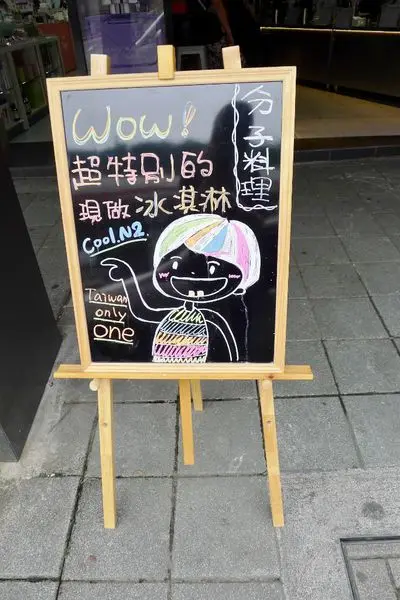 Wow!
超特別的
現做冰淇淋
分子料理
Cool.N2.
Taiwan
only
one